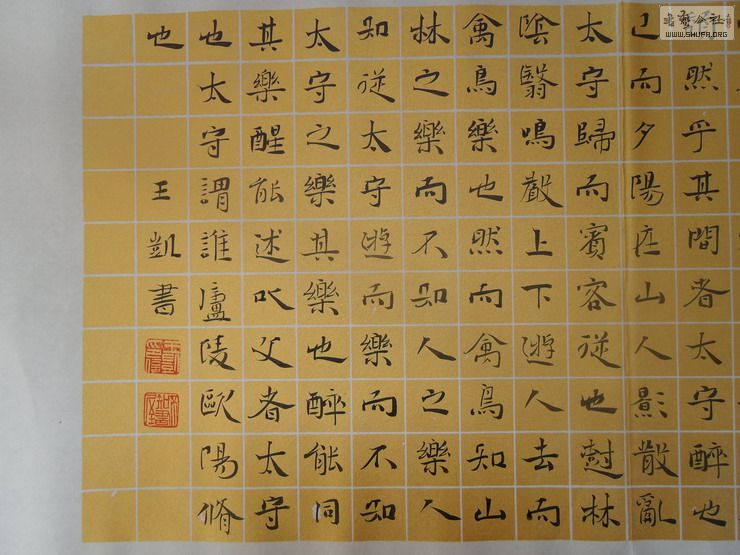 然乎其間者太守醉也
已而夕陽在山人影散亂
太守歸而賓客從也樹林
陰翳鳴聲上下遊人去而
禽鳥樂也然而禽鳥知山
林之樂而不知人之樂人
知從太守遊而樂而不知
太守之樂其樂也醉能同
其樂醒能述以文者太守
也太守謂誰廬陵歐陽脩
也
王凱書
書藝公社
WWW.SHUFA.ORG